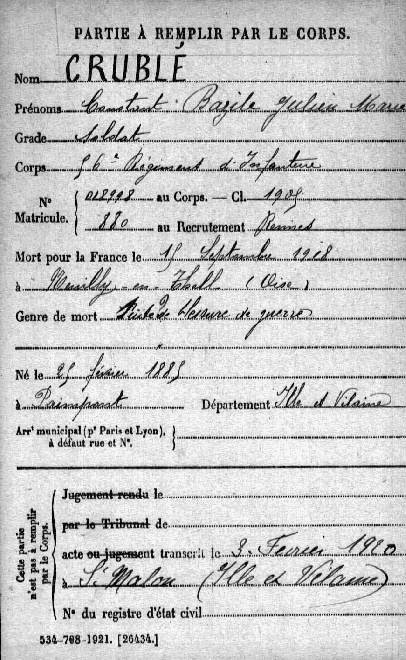 PARTIE À REMPLIR PAR LE CORPS.
Nom CRUBLÉ
Prénoms Constant Bazile Julien Marie
Grade Soldat
Corps 56e Régiment d'Infanterie
N° Matricule. 018998 au Corps. — Cl. 1905
880 au Recrutement Rennes
Mort pour la France le 15 Septembre 1918
à Neuilly-en-Thell (Oise)
Genre de mort Suites de blessure de guerre
Né le 25 février 1885
à Paimpont Département Ille et Vilaine
Arrt municipal (pr Paris et Lyon), à défaut rue et N°.
Cette partie n'est pas à remplir par le Corps.
Jugement rendu le
par le Tribunal de
acte ou jugement transcrit le 3 Février 1920
à St Malon (Ille et Vilaine)
N° du registre d'état civil
534-708-1921. [26434.]